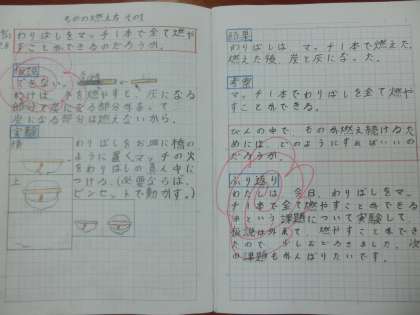 ものの燃え方 その1
わりばしをマッチ1本で全て燃や
すことができるのだろうか。
仮説
できない。
わけは、木を燃やすと、灰になる
部分と炭になる部分があって
炭になる部分は燃えないから。
実験
横
わりばしをお皿に橋の
ように置く。マッチの火
をわりばしの真ん中に
つける。(必要ならば、
ピンセットで動かす。)
上
結果
わりばしは、マッチ1本で燃えた。
燃えた後、炭と灰になった。
考察
マッチ1本でもわりばしが全て燃や
すことができる。
びんの中で、ものが燃え続けるため
には、どのようにすればいいの
だろうか。
ふり返り
わたしは、今日、わりばしをマッ
チ1本で全て燃やすことができる
か という課題について実験して
仮説は外れて、燃やすことができ
たので、少しおどろきました。次
の課題もがんばりたいです。